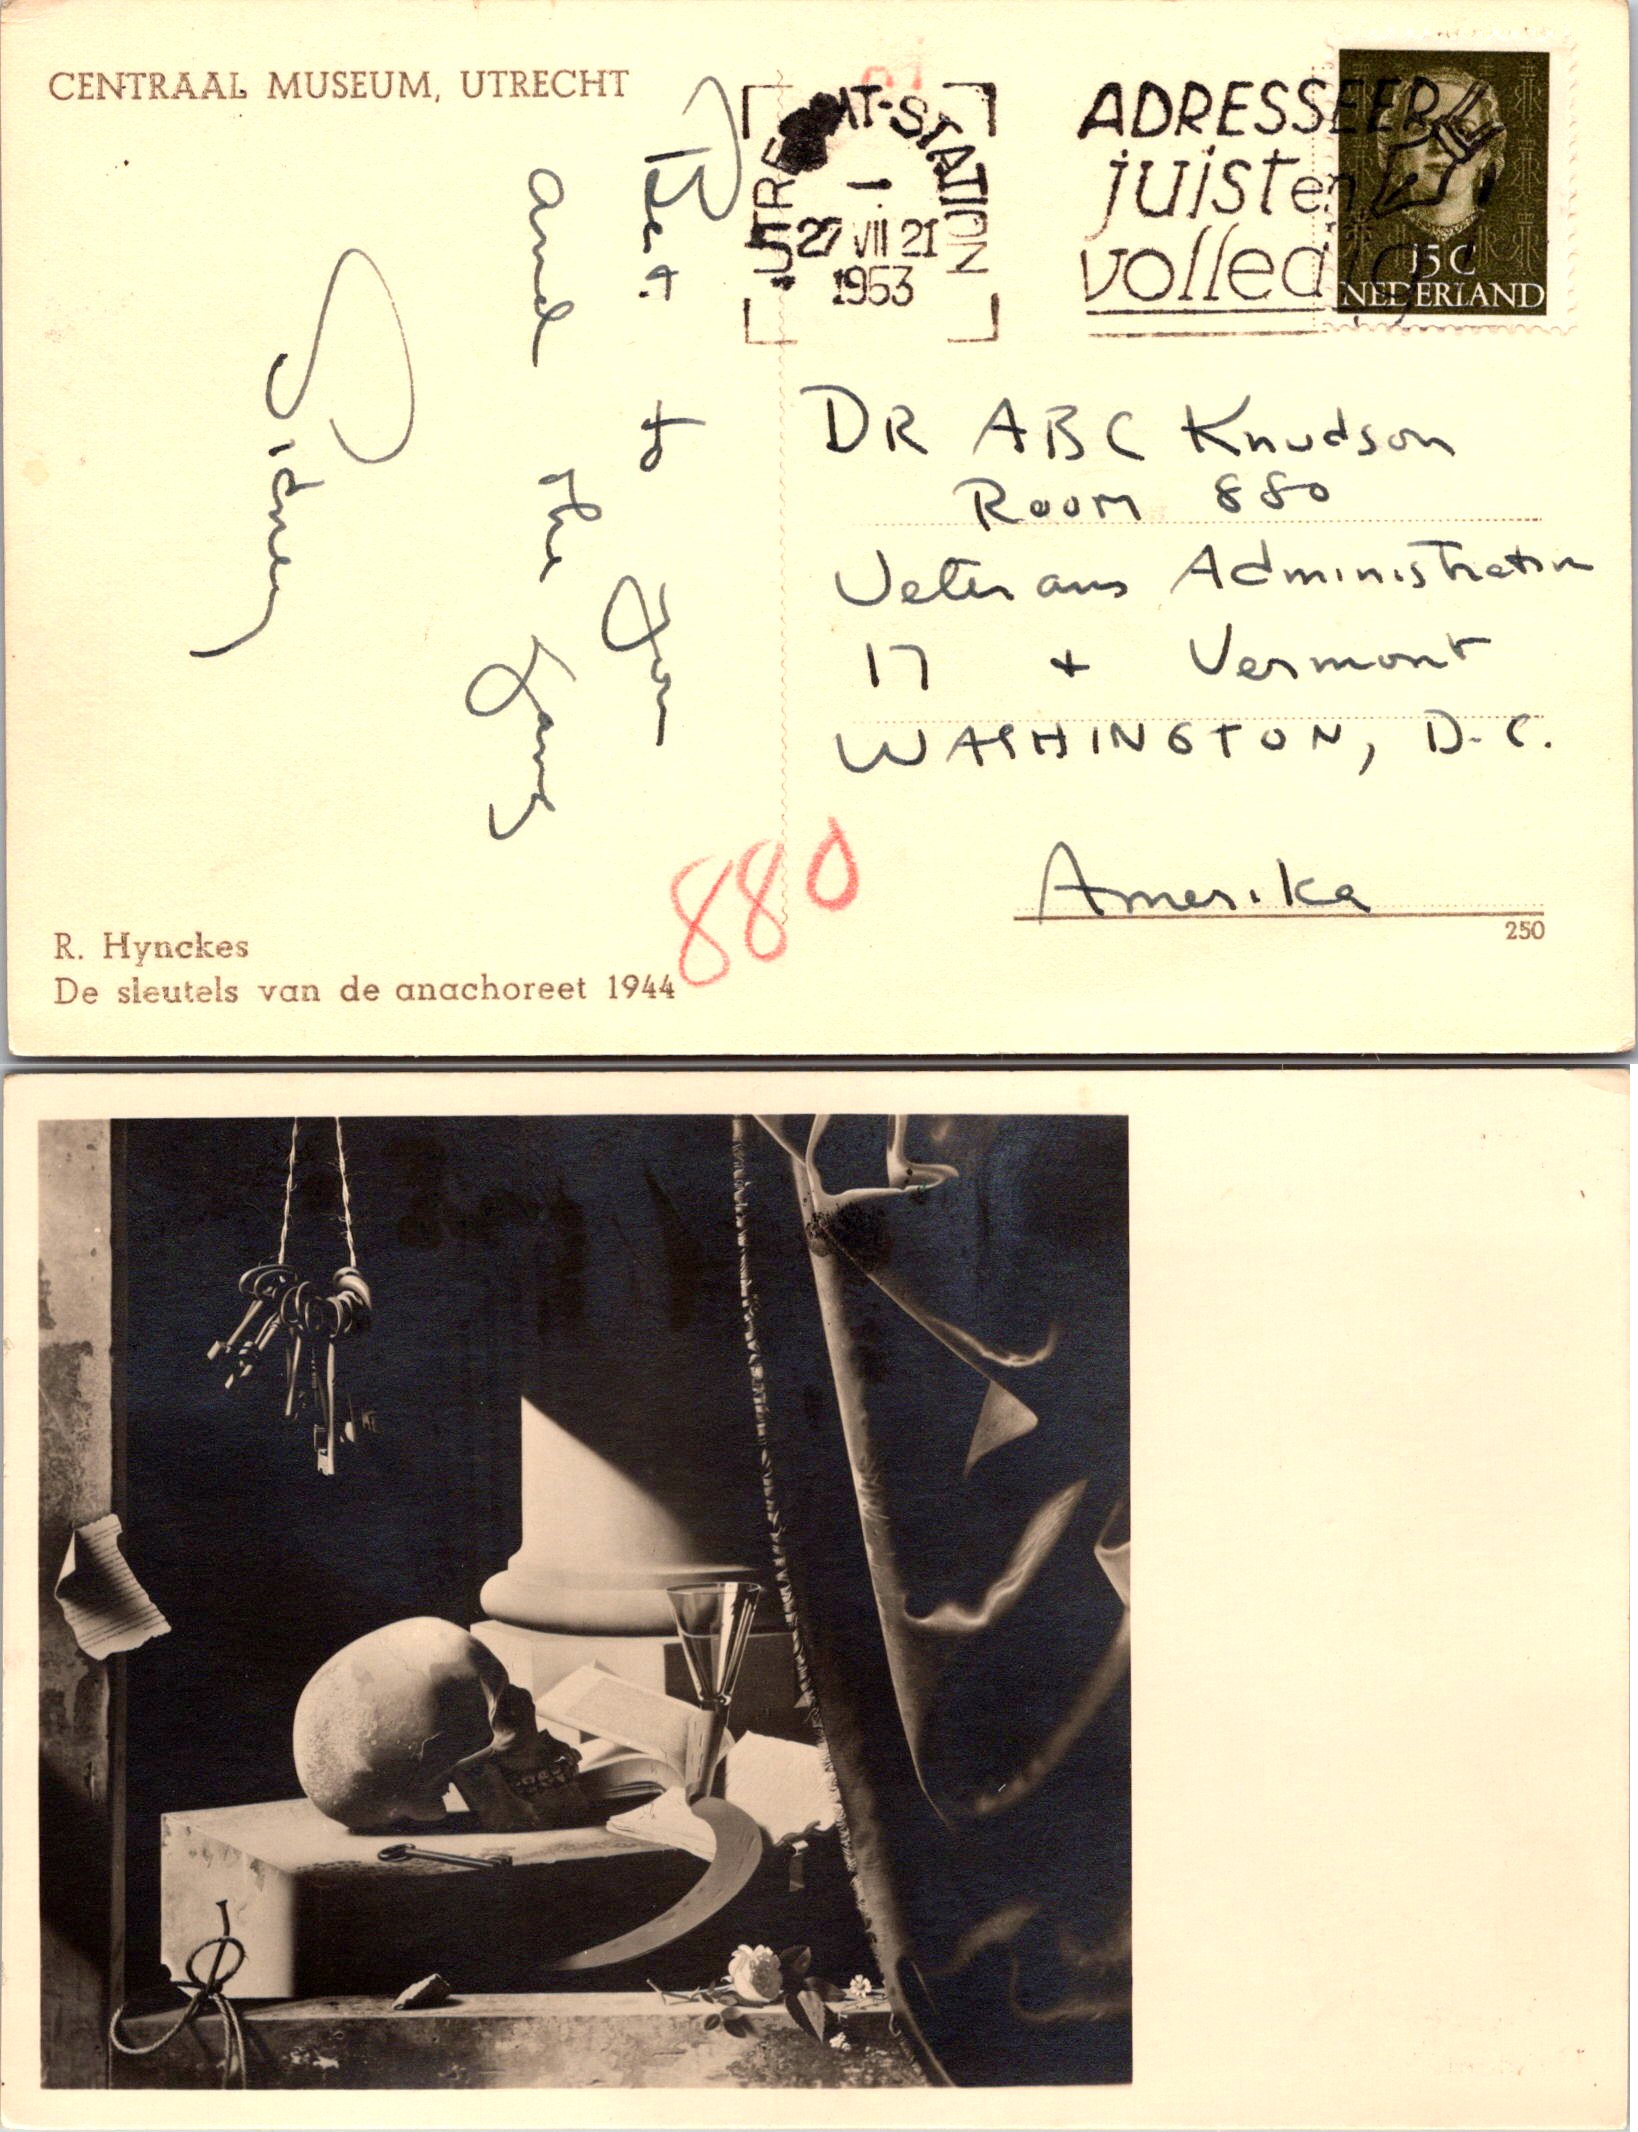 CENTRAAL MUSEUM, UTRECHT
Best to You
and to the Gang
Sidney
UTRECHT-STATION
27 VII 21
1953
ADRESSEER
juist en
volledig
15 C
NEDERLAND
DR ABC Knudson
Room 880
Veterans Administration
17 + Vermont
WASHINGTON, D.C.
Amerika
880
250
R. Hynckes
De sleutels van de anachoreet 1944